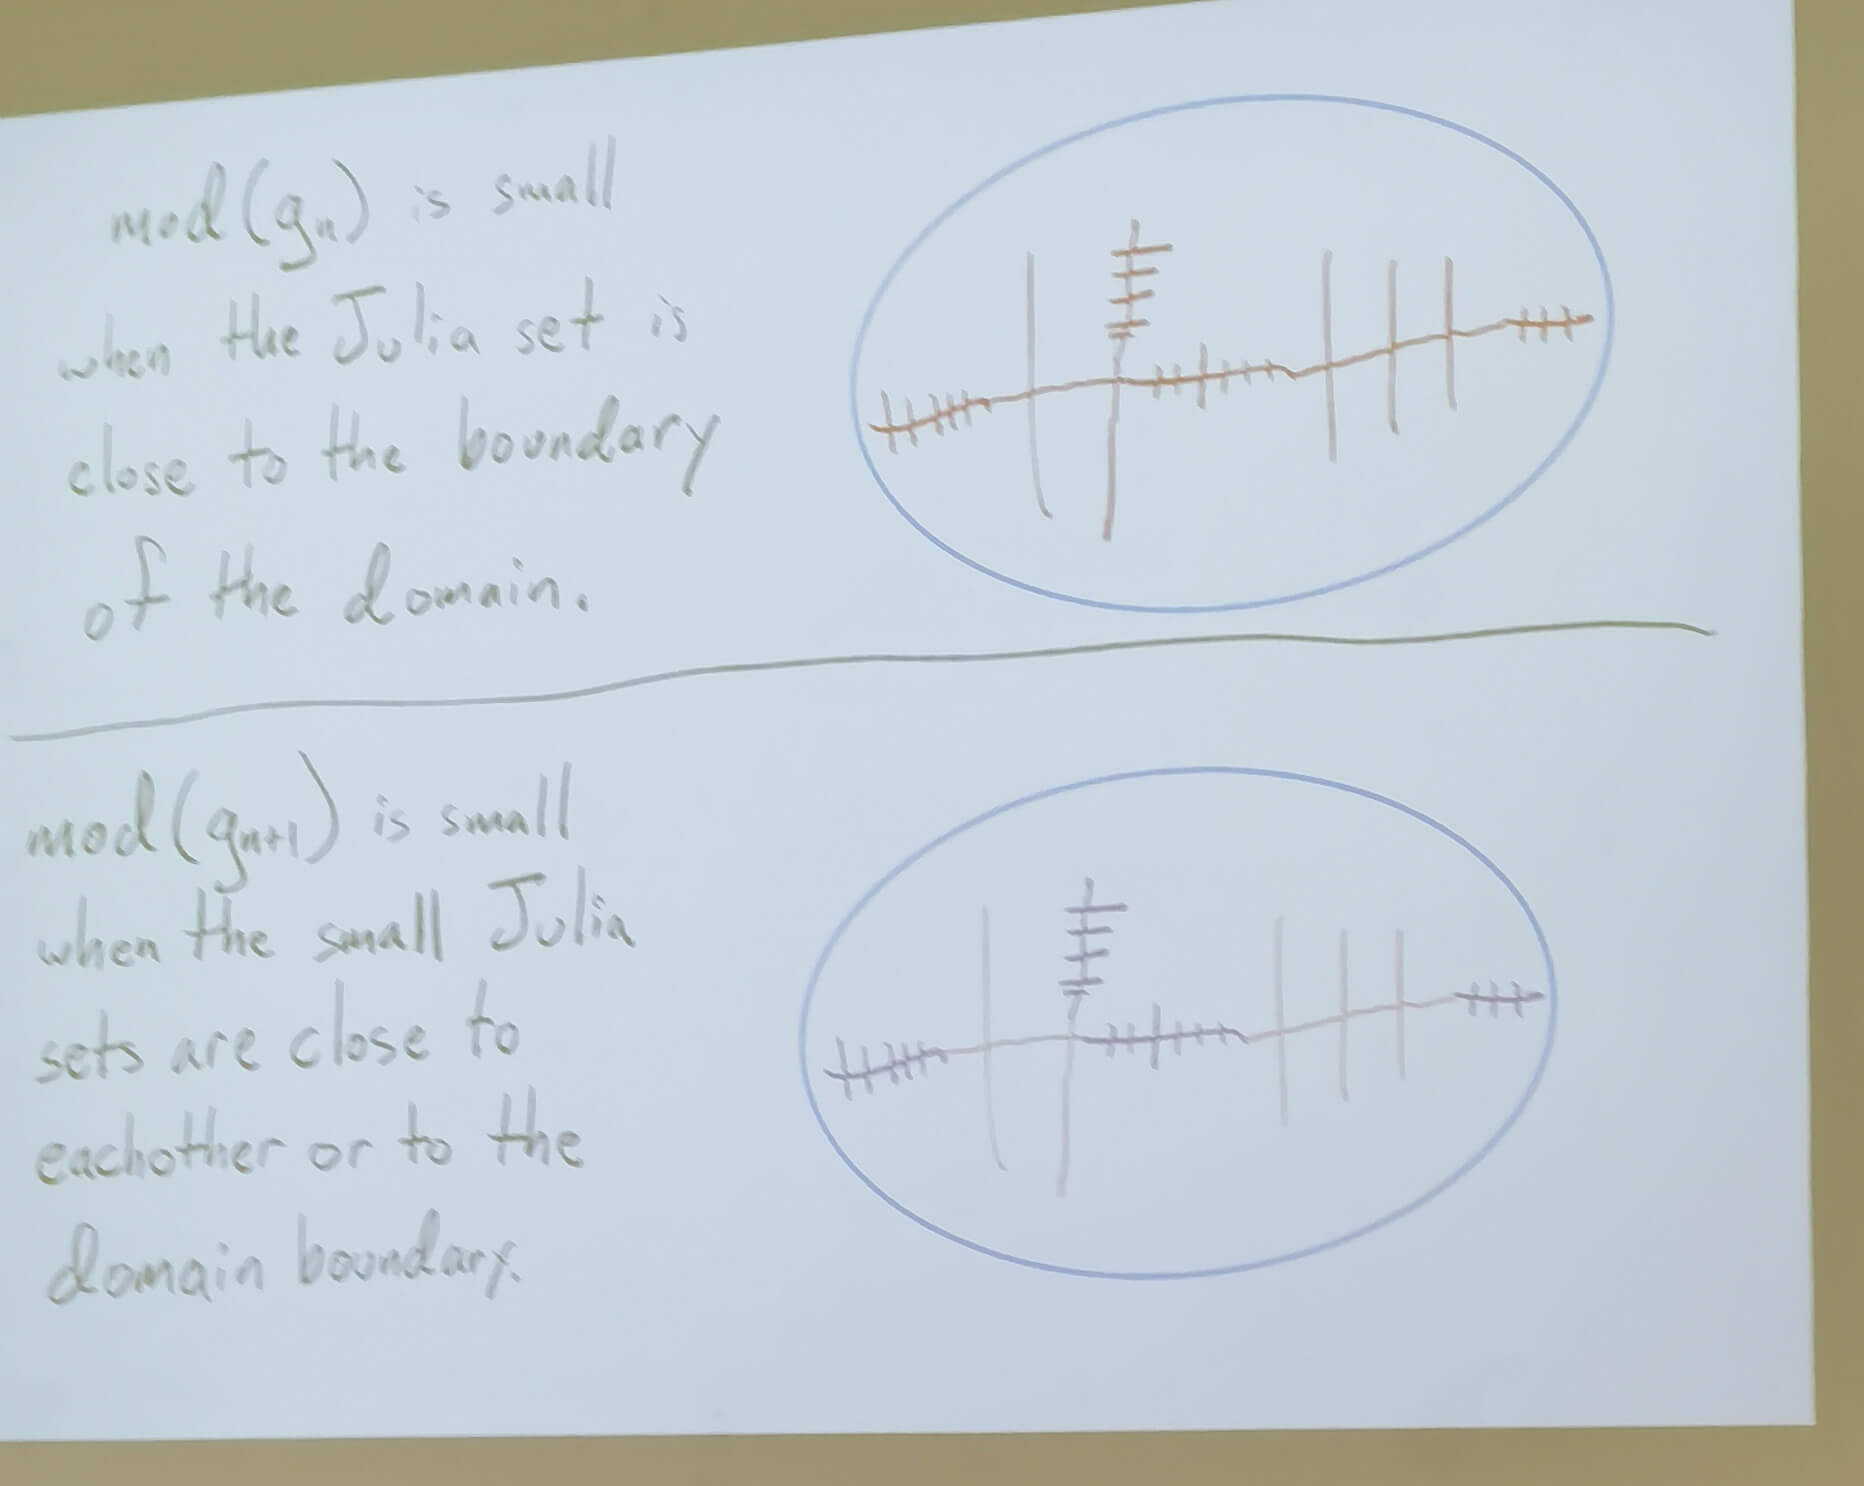 mod(gₙ) is small
when the Julia set is
close to the boundary
of the domain.
mod(gₙ₊₁) is small
when the small Julia
sets are close to
eachother or to the
domain boundary.